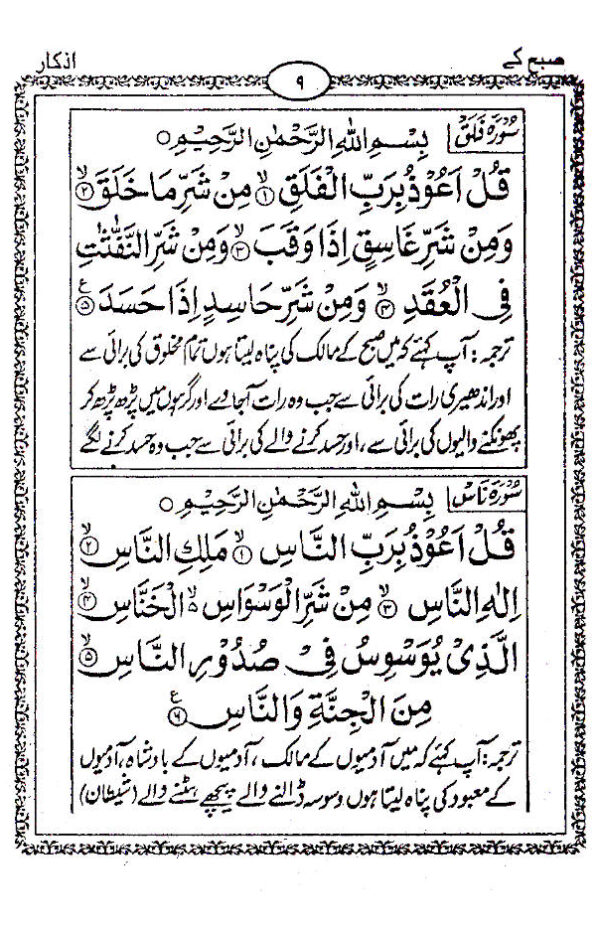 صبح کے
۹
اذکار
سُوْرَۃ فَلَق
بِسْمِ اللّٰهِ الرَّحْمٰنِ الرَّحِیْمِ ○
قُلْ اَعُوْذُ بِرَبِّ الْفَلَقِ ۙ﴿۱﴾ مِنْ شَرِّ مَا خَلَقَ ۙ﴿۲﴾
وَمِنْ شَرِّ غَاسِقٍ اِذَا وَقَبَ ۙ﴿۳﴾ وَمِنْ شَرِّ النَّفّٰثٰتِ
فِی الْعُقَدِ ۙ﴿۴﴾ وَمِنْ شَرِّ حَاسِدٍ اِذَا حَسَدَ ﴿۵﴾ ع
ترجمہ: آپ کہئے کہ میں صبح کے مالک کی پناہ لیتا ہوں تمام مخلوق کی برائی سے
اور اندھیری رات کی برائی سے جب وہ رات آجاوے اور گرہوں میں پڑھ پڑھ کر
پھونکنے والیوں کی برائی سے، اور حسد کرنے والے کی برائی سے جب وہ حسد کرنے لگے
سُوْرَۃ نَاس
بِسْمِ اللّٰهِ الرَّحْمٰنِ الرَّحِیْمِ ○
قُلْ اَعُوْذُ بِرَبِّ النَّاسِ ۙ﴿۱﴾ مَلِكِ النَّاسِ ۙ﴿۲﴾
اِلٰهِ النَّاسِ ۙ﴿۳﴾ مِنْ شَرِّ الْوَسْوَاسِ ۵ۙ الْخَنَّاسِ ۙ﴿۴﴾
الَّذِیْ یُوَسْوِسُ فِیْ صُدُوْرِ النَّاسِ ۙ﴿۵﴾
مِنَ الْجِنَّةِ وَالنَّاسِ ﴿۶﴾ ع
ترجمہ: آپ کہئے کہ میں آدمیوں کے مالک، آدمیوں کے بادشاہ، آدمیوں
کے معبود کی پناہ لیتا ہوں وسوسہ ڈالنے والے پیچھے ہٹنے والے (شیطان)